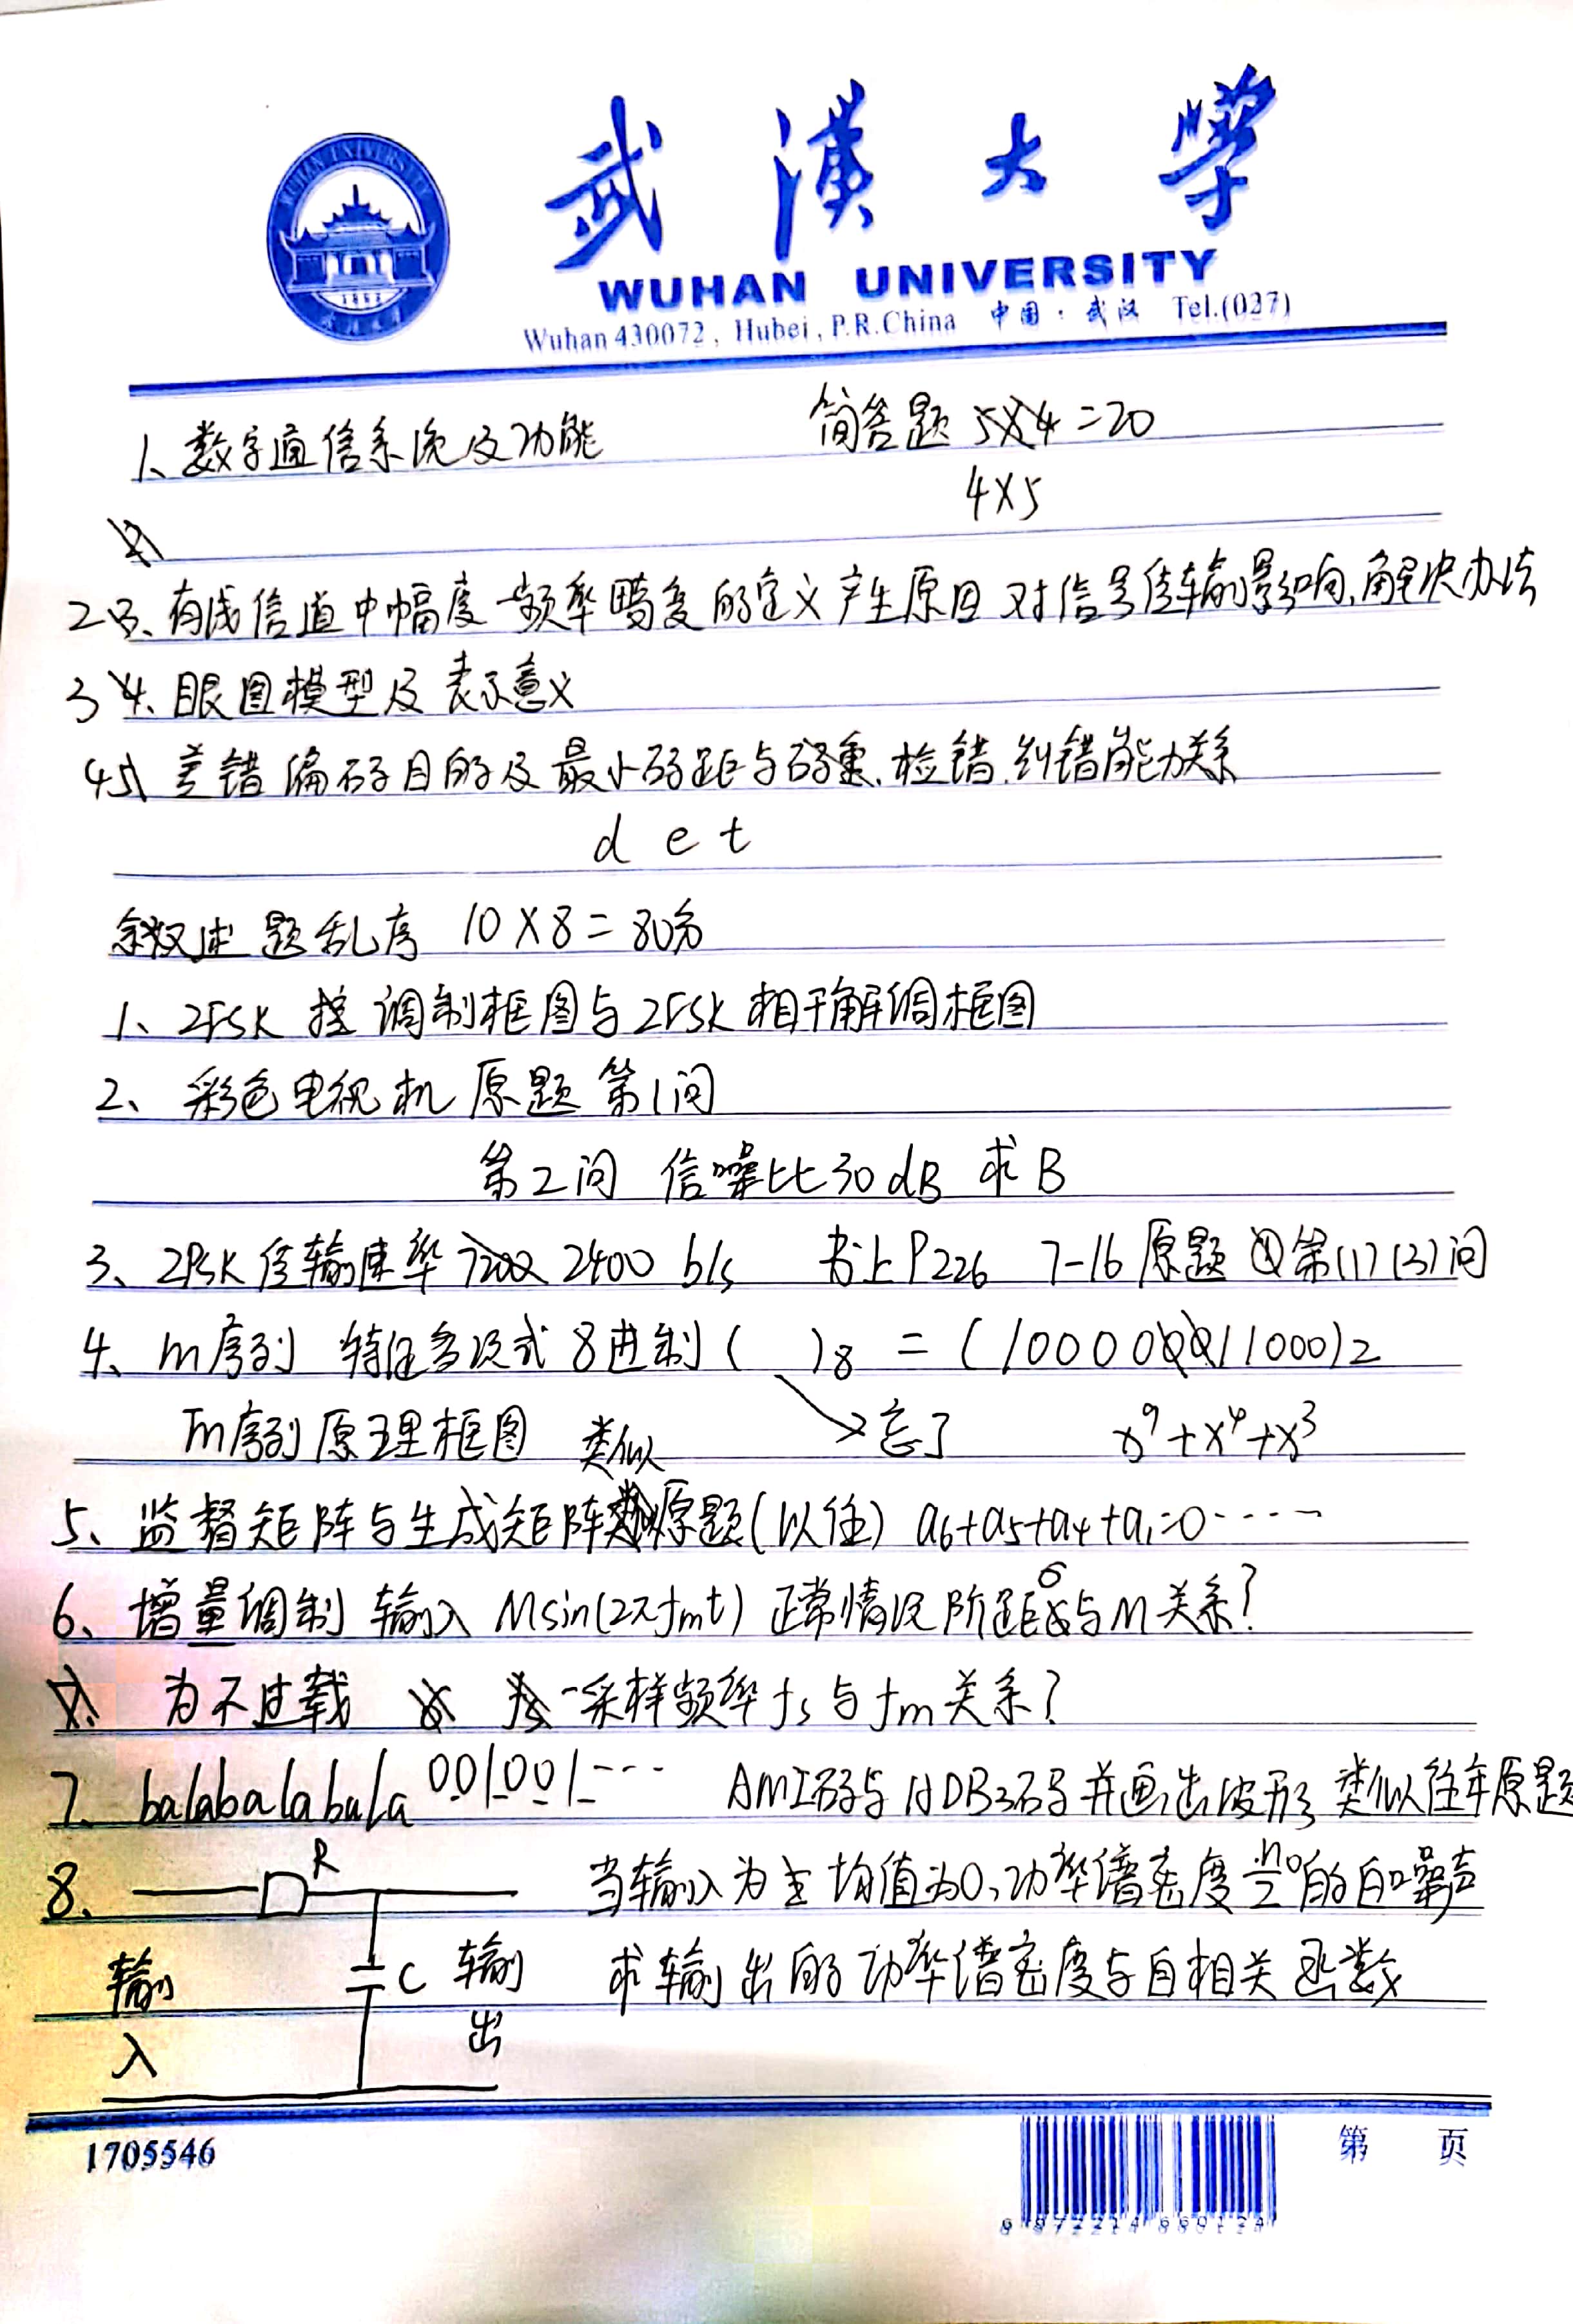 武漢大學
WUHAN UNIVERSITY
Wuhan 430072, Hubei, P.R.China 中国·武汉 Tel.(027)
1、数字通信系统及功能 简答题 5×4=20
4×5
2、有线信道中幅度-频率畸变的定义产生原因对信号传输影响,解决办法
3 眼图模型及表示意义
4 差错编码目的及最小码距与码重、检错、纠错能力关系
d e t
叙述题乱序 10×8=80分
1、2FSK 调制框图与2FSK相干解调框图
2、彩色电视机原题第1问
第2问 信噪比30dB 求B
3、2PSK传输速率 2400 b/s 书上P226 7-16原题 第(1)(3)问
4、m序列 特征多项式 8进制( )8 = (1000011000)2
m序列原理框图 忘了 x⁹+x⁴+x³
类似
5、监督矩阵与生成矩阵原题(以往) a6+a5+a4+a1=0……
6、增量调制 输入 Msin(2πfmt) 正常情况阶距σ与M关系?
为不过载 采样频率fs与fm关系?
7. balabalabala 001001… AMI码与HDB3码并画出波形 类似往年原题
8、 R 当输入为 均值为0,功率谱密度n0/2的白噪声
输入 C 输出 求输出的功率谱密度与自相关函数
1705546 第 页